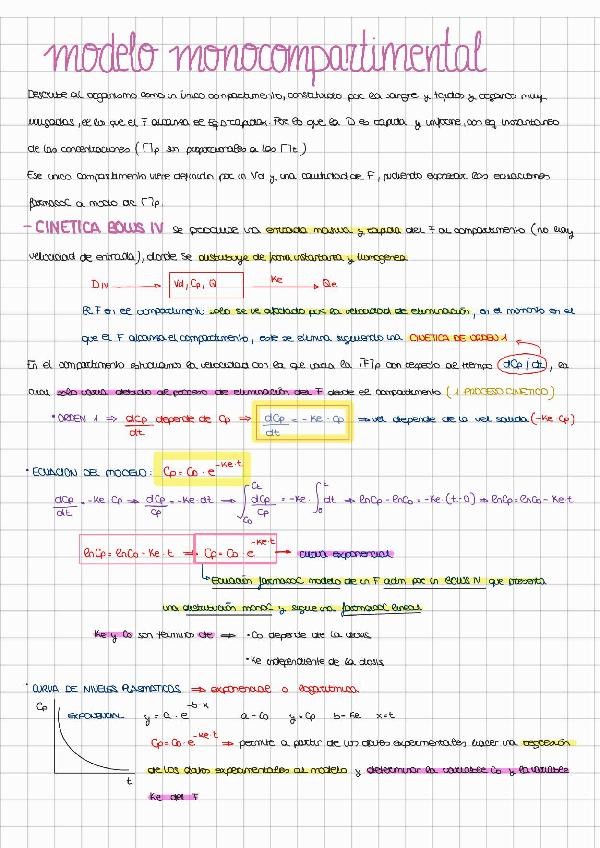 modelo monocompartimental
Describe al organismo como un único compartimento, constituido por la sangre y tejidos y órganos muy
irrigados, en los que el F alcanza el Eq D rápida. Por lo que la D es rápida y uniforme, con eq instantáneo
de las concentraciones ([ ]p son proporcionales a las [ ]t)
Ese único compartimento viene definido por un Vd y una cantidad de F, pudiendo expresar las ecuaciones
farmacoc a modo de [ ]p.
- CINETICA BOLUS IV se produce una entrada masiva y rápida del F al compartimento (no hay
velocidad de entrada), donde se distribuye de forma instantánea y homogénea
DIV → Vd, Cp, Q Ke → Qe
El F en el compartimento solo se ve afectado por la velocidad de eliminación, en el momento en el
que el F alcanza el compartimento, este se elimina siguiendo una CINETICA DE ORDEN 1
En el compartimento estudiamos la velocidad con la que varía la [F]p con respecto al tiempo (dCp/dt), la
cual solo varía debido al proceso de eliminación del F desde el compartimento (1 PROCESO CINETICO)
· ORDEN 1 ⇒ dCp/dt depende de Cp ⇒ dCp/dt = -Ke · Cp ⇒ vel depende de la vel salida (-Ke·Cp)
· ECUACION DEL MODELO: Cp = Co · e^-Ke·t
dCp/dt = -Ke · Cp → dCp/Cp = -Ke·dt → ∫Co Ct dCp/Cp = -Ke · ∫0 t dt → lnCp - lnCo = -Ke·(t-0) → lnCp = lnCo - Ke·t
lnCp = lnCo - Ke·t ⇒ Cp = Co · e^-Ke·t → curva exponencial
↳ Ecuación farmacoc modelo de un F adm por un BOLUS IV que presenta
una distribución monoC y sigue una farmacoc lineal
Ke y Co son términos de ⇒ · Co depende de la dosis
· Ke independiente de la dosis
· CURVA DE NIVELES PLASMATICOS ⇒ exponencial o logarítmica
Cp EXPONENCIAL y = a · e^-b·x a = Co y = Cp b = Ke x = t
Cp = Co · e^-Ke·t ⇒ permite a partir de unos datos experimentales hacer una regresión
t de los datos experimentales al modelo y determinar la variable Co y la variable
Ke del F